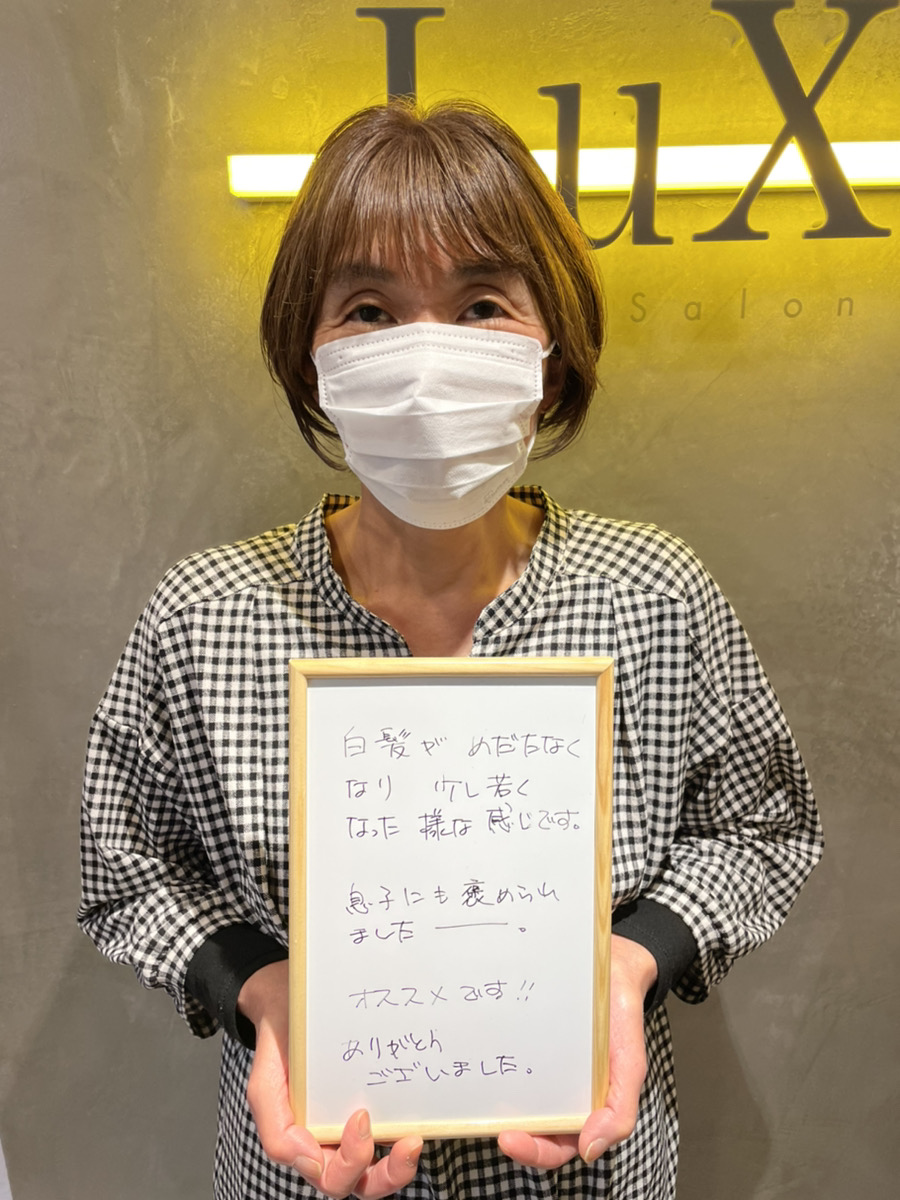 LuX
Salon
白髪が めだたなく
なり 少し若く
なった 様な 感じです。
息子にも褒められ
ました ――。
オススメ です!!
ありがとう
ございました。